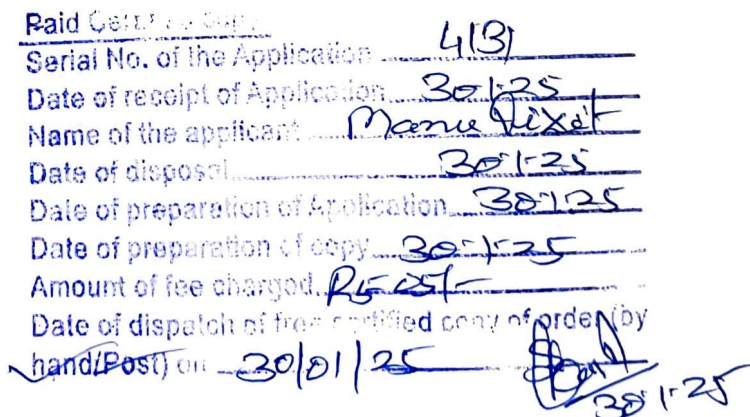 Paid Certified Copy
Serial No. of the Application 4131
Date of receipt of Application 30-1-25
Name of the applicant Manu Dixit
Date of disposal 30-1-25
Date of preparation of Application 30-1-25
Date of preparation of copy 30-1-25
Amount of fee charged Rs 05/-
Date of dispatch of free certified copy of order (by
hand/Post) on 30/01/25
30-1-25